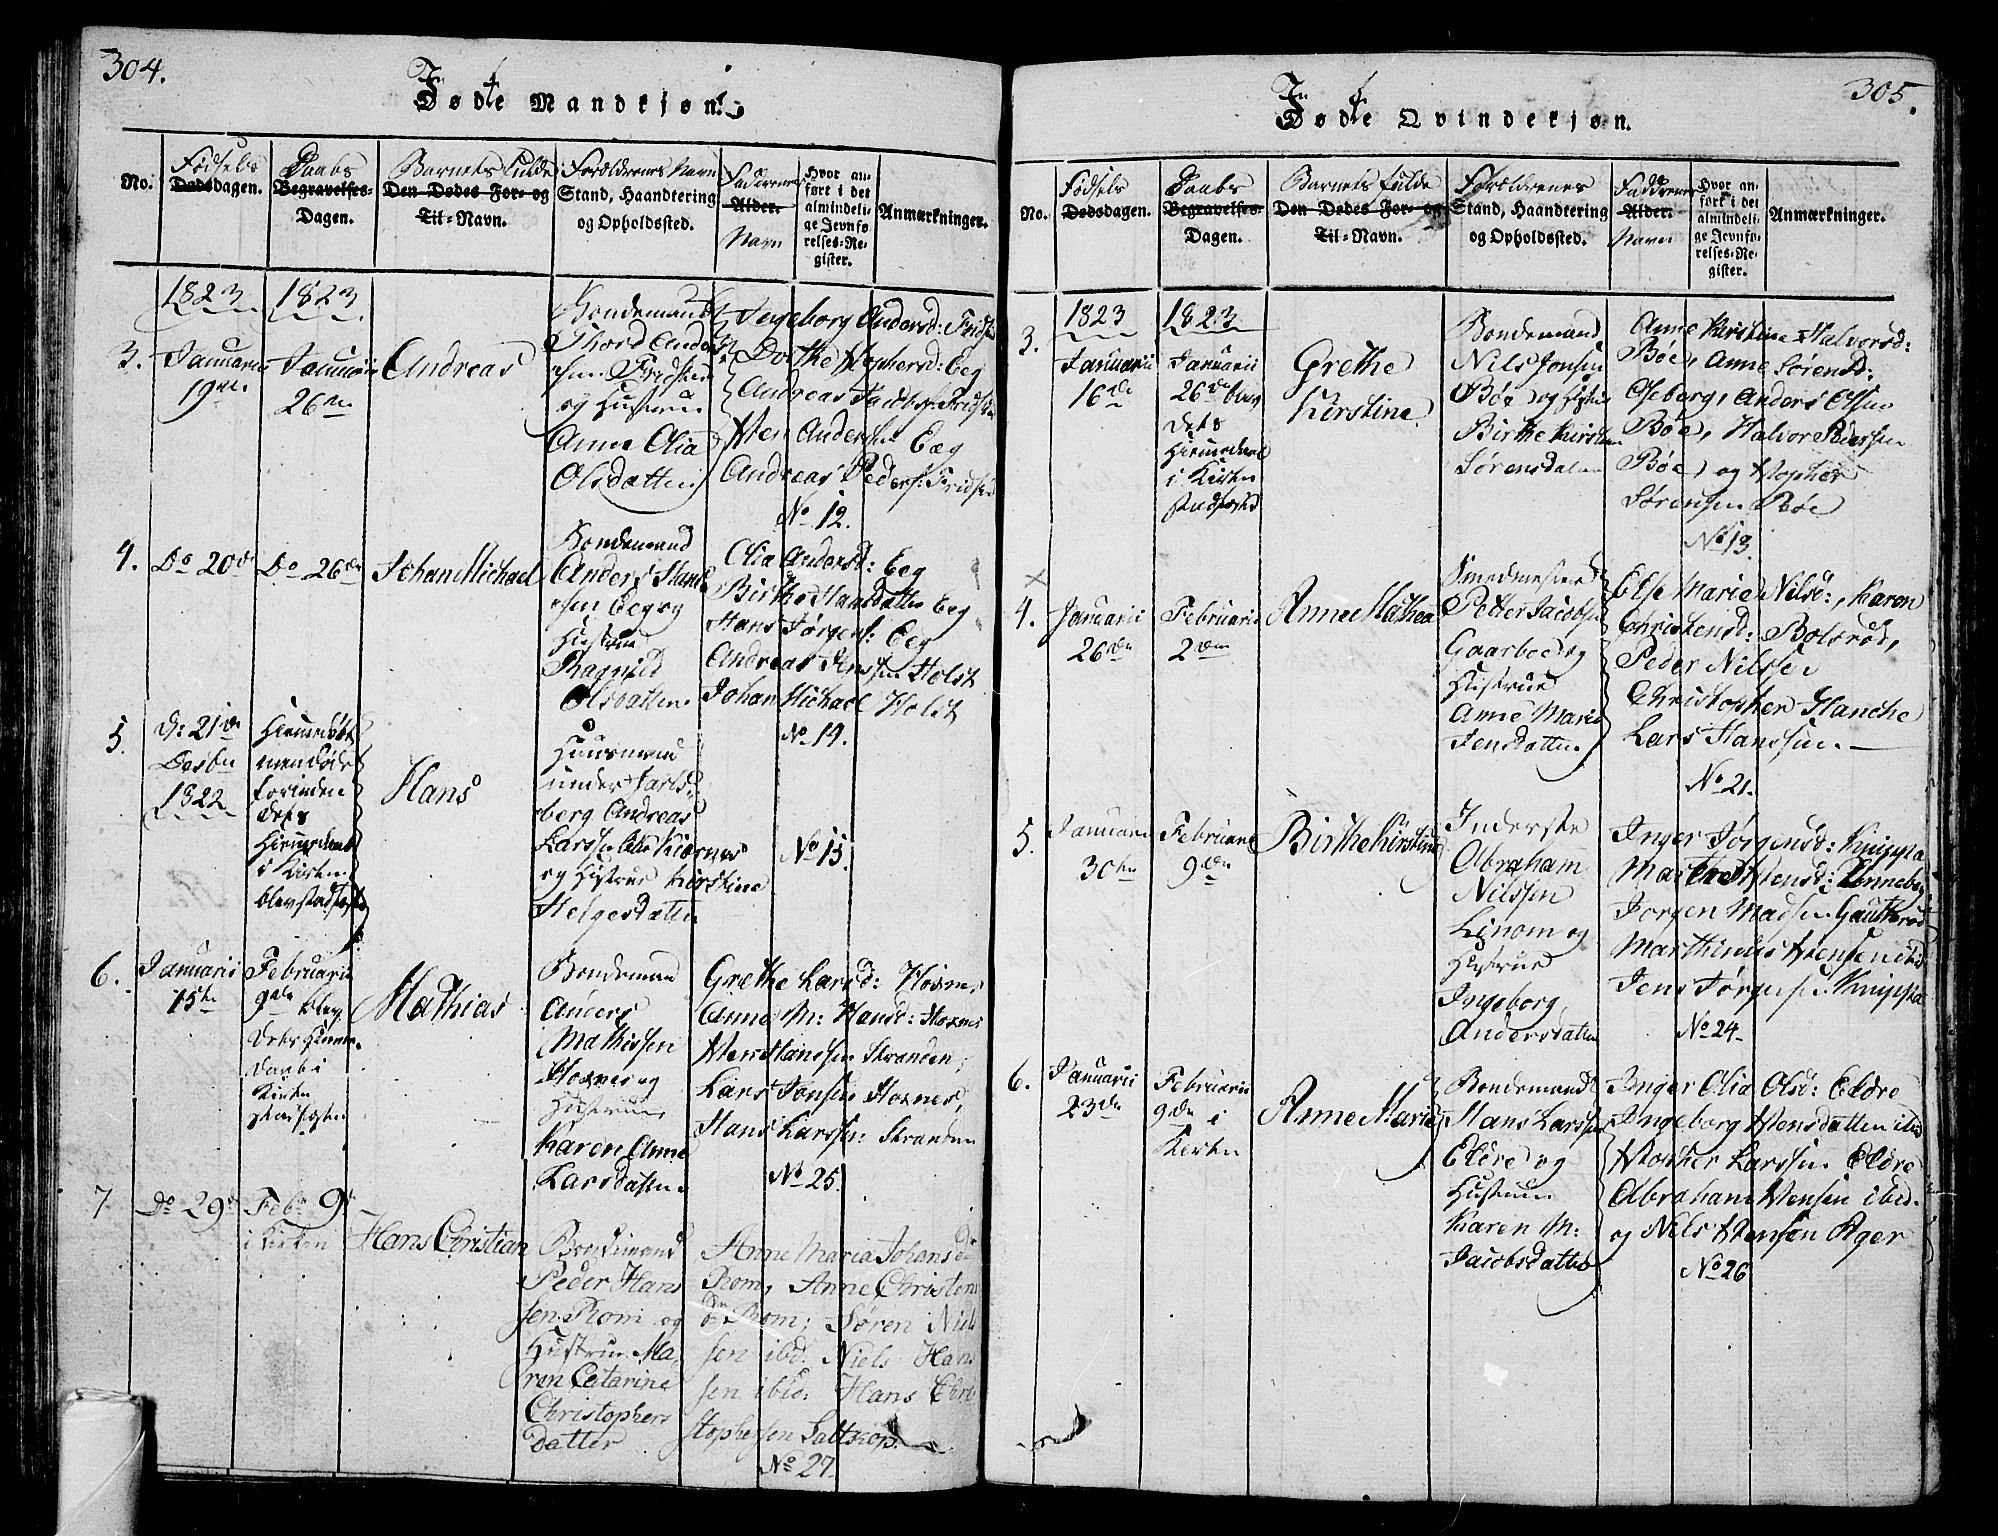 304.
Fødte Mandkjøn.
No.
Fødsels
Dødsdagen.
Daabs
Begravelses-
Dagen.
Barnets fulde
Den Dødes For- og
Til-Navn.
Forældrenes Navn
Stand, Haandtering
og Opholdssted.
Faddernes
Alder.
Navn
Hvor an-
ført i det
almindeli-
ge Jevnfø-
relses-Re-
gister.
Anmærkninger.
1823
1823.
3.
Januarii
19de
Januarii
26de
Andreas
Bondemand
Thord Ander
sen Fridsøe
og Hustrue
Anne Olia
Olsdatter
Ingeborg Andersd:
Dorthe Stophersd: Eeg
Andreas Jacobs:
Sten Andersen Eeg
Andreas Peders:
No 12.
4.
Do 20de
Do 26de
Johan Michael
Bondemand
Anders Hans
sen Eeg og
Hustrue
Ragnild
Olsdatter
Olia Andersd: Eeg
Birthe Hansdatter Eeg
Hans Jørgens: Eeg
Andreas Jensen Holst
Johan Michael Holst
No 19.
5.
D: 21de
Decbr
1822
Hiemdøbt
i Kirken
Hans
Huusmand
under Jarls-
berg Andreas
Larssen
og Hustrue Kirstine
Helgesdatter
No 15.
6.
Januarii
15de
Februarii
9de
Daab i
Kirken
Mathias
Bondemand
Anders
Mathissen
Hoxnes og
Hustrue
Karen Anne
Larsdatter
Grethe Larsd: Hoxnes
Anne M: Hansd: Hoxnes
Sten Hanssen Stranden,
Lars Jonsen Hoxnes,
Hans Larssen: Stranden
No 25.
7
Do 29de
Febr 9de
i Kirken
Hans Christian
Bondemand
Peder Hans
sen Rom og
Hustrue Ma
ren Catarine
Christophers
datter
Anne Maria Johansd
Rom, Anne Christens
dr Rom, Søren Niel
sen ibd. Niels Hans
sen ibid: Hans Chri
stophersen Saltkop.
No 27.
305.
Fødte Qvindekjøn.
No.
Fødsels
Dødsdagen.
Daabs
Begravelses-
Dagen.
Barnets fulde
Den Dødes For- og
Til-Navn.
Forældrenes
Stand, Haandtering
og Opholdssted.
Faddernes
Alder.
Navn
Hvor an-
ført i det
almindeli-
ge Jevnfø-
relses-Re-
gister.
Anmærkninger.
1823
1823
3.
Januarii
16de
Januarii
26de blev
dets
Hiemedaab
i Kirken
stadfæsted
Grethe
Kirstine
Bondemand
Nils Jonsen
Bøe og Hustrue
Birthe Kirstine
Sørensdatter
Anne Kirstine Halvorsd:
Bøe, Anne Sørensd:
Aseberg, Anders Olsen
Bøe, Halvor Pedersen
Bøe og Stopher
Sørensen Bøe
No 13.
×
4.
Januarii
26de
Februarii
2den
Anne Mathea
Smedmester
Petter Jacobsen
Gaarboe og
Hustrue
Anne Marie
Jensdatter
Else Marie Nilsd:, Karen
Christensd: Bolsrød,
Peder Nilssen
Christopher Hanche
Lars Hanssen.
No 21.
5.
Januarii
30te
Februarii
9de
Birthe Kirstine
Inderste
Abraham
Nilssen
Linom og
Hustrue
Ingeborg
Andersdatter
Inger Jørgensd: Knippa
Marthe Stensd:
Jørgen Madsen
Marthinus Stensen ibid
Jens Jørgensen Knippa
No 24
6.
Januarii
23de
Februarii
9de i
Kirken
Anne Marie
Bondemand
Hans Larssen
Eldre og
Hustrue
Karen M:
Jacobsdatter
Inger Olia Olsd: Eldre
Ingeborg Stensdatter ibid
Stopher Larssen Eldre
Abraham Stensen ibid.
og Nils Stensen Ager
No 26